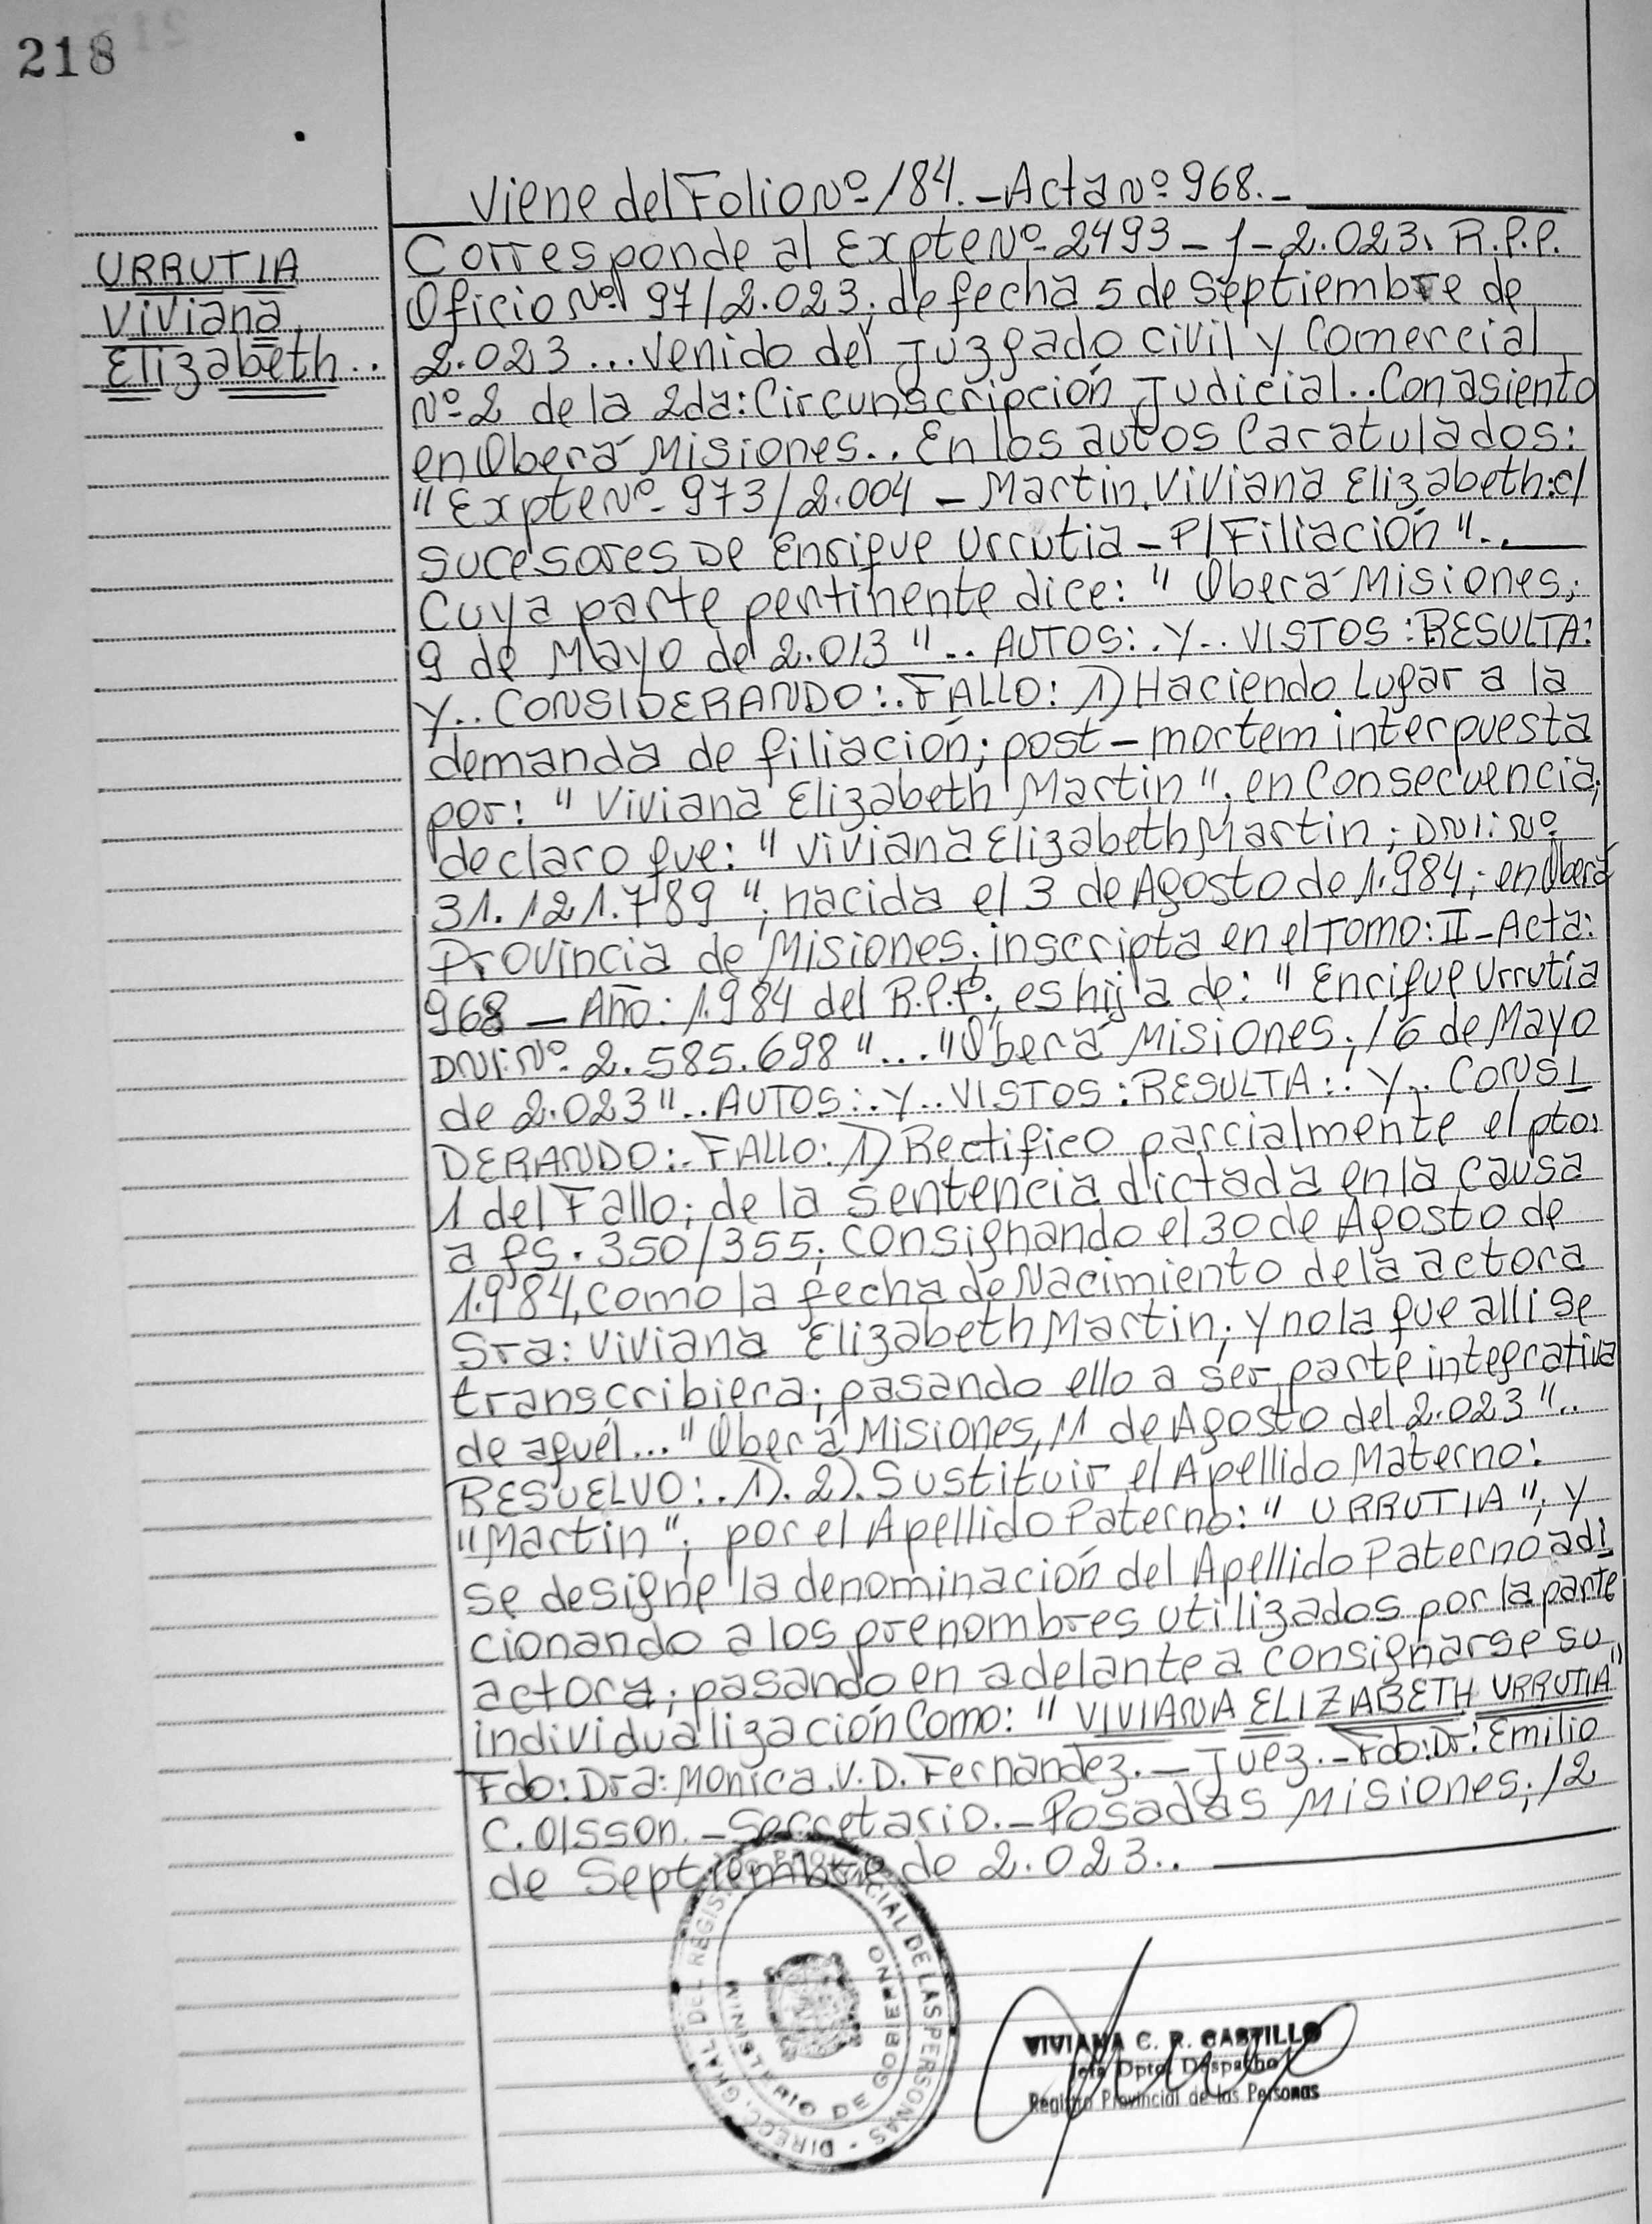 218
Viene del Folio Nº 184. - Acta Nº 968. -
URRUTIA
Viviana
Elizabeth..
Corresponde al Expte Nº 2493 - 1 - 2.023. R.P.P.
Oficio Nº 97/2.023; de fecha 5 de Septiembre de
2.023 ... venido del Juzgado Civil y Comercial
Nº 2 de la 2da: Circunscripción Judicial.. Con asiento
en Oberá Misiones.. En los autos Caratulados:
"Expte Nº 973/2.004 - Martin, Viviana Elizabeth: c/
sucesores De Enrique Urrutia - P/Filiación"..
Cuya parte pertinente dice: "Oberá Misiones;
9 de Mayo de 2.013".. AUTOS:. Y.. VISTOS: RESULTA:
Y.. CONSIDERANDO:. FALLO: 1) Haciendo Lugar a la
demanda de filiación; post-mortem interpuesta
por: "Viviana Elizabeth Martin"; en Consecuencia;
declaro que: "Viviana Elizabeth Martin; DNI: Nº
31.121.789"; nacida el 3 de Agosto de 1.984; en Oberá
Provincia de Misiones; inscripta en el Tomo: II - Acta:
968 - Año: 1.984 del R.P.P; es hija de: "Enrique Urrutia
DNI: Nº 2.585.698"... "Oberá Misiones; 16 de Mayo
de 2.023".. AUTOS:. Y.. VISTOS: RESULTA:. Y.. CONSI
DERANDO:. FALLO: 1) Rectifico parcialmente el pto:
1 del Fallo; de la Sentencia dictada en la causa
a fs. 350/355; consignando el 30 de Agosto de
1.984, como la fecha de Nacimiento de la actora
Sra: Viviana Elizabeth Martin; y no la que alli se
transcribiera; pasando ello a ser parte integrativa
de aquél... "Oberá Misiones, 11 de Agosto del 2.023"..
RESUELVO:. 1). 2). Sustituir el Apellido Materno:
"Martin"; por el Apellido Paterno: "URRUTIA"; y
se designe la denominación del Apellido Paterno adi
cionando a los prenombres utilizados por la parte
actora; pasando en adelante a consignarse su
individualización Como: "VIVIANA ELIZABETH URRUTIA"
Fdo: Dra: Monica. V. D. Fernandez. - Juez. - Fdo: Dr: Emilio
C. Olsson. - Secretario. - Posadas Misiones; 12
de Septiembre de 2.023..
DIRECC. GRAL. DEL REGISTRO PROVINCIAL DE LAS PERSONAS -
MINISTERIO DE GOBIERNO
VIVIANA C. R. CASTILLO
Jefa Dpto. Despacho
Registro Provincial de las Personas